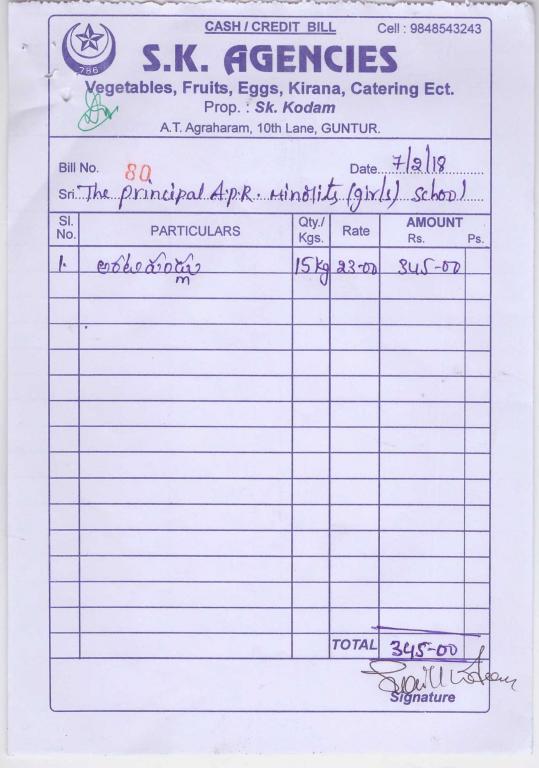 CASH / CREDIT BILL Cell : 9848543243
786
S.K. AGENCIES
Vegetables, Fruits, Eggs, Kirana, Catering Ect.
Prop. : Sk. Kodam
A.T. Agraharam, 10th Lane, GUNTUR.
Bill No. 80 Date 7/2/18
Sri The principal A.P.R. Minorits (girls) school
Sl. No. PARTICULARS Qty./ Kgs. Rate AMOUNT Rs. Ps.
1. అరటిపండ్లు 15kg 23-00 345-00
TOTAL 345-00
Signature